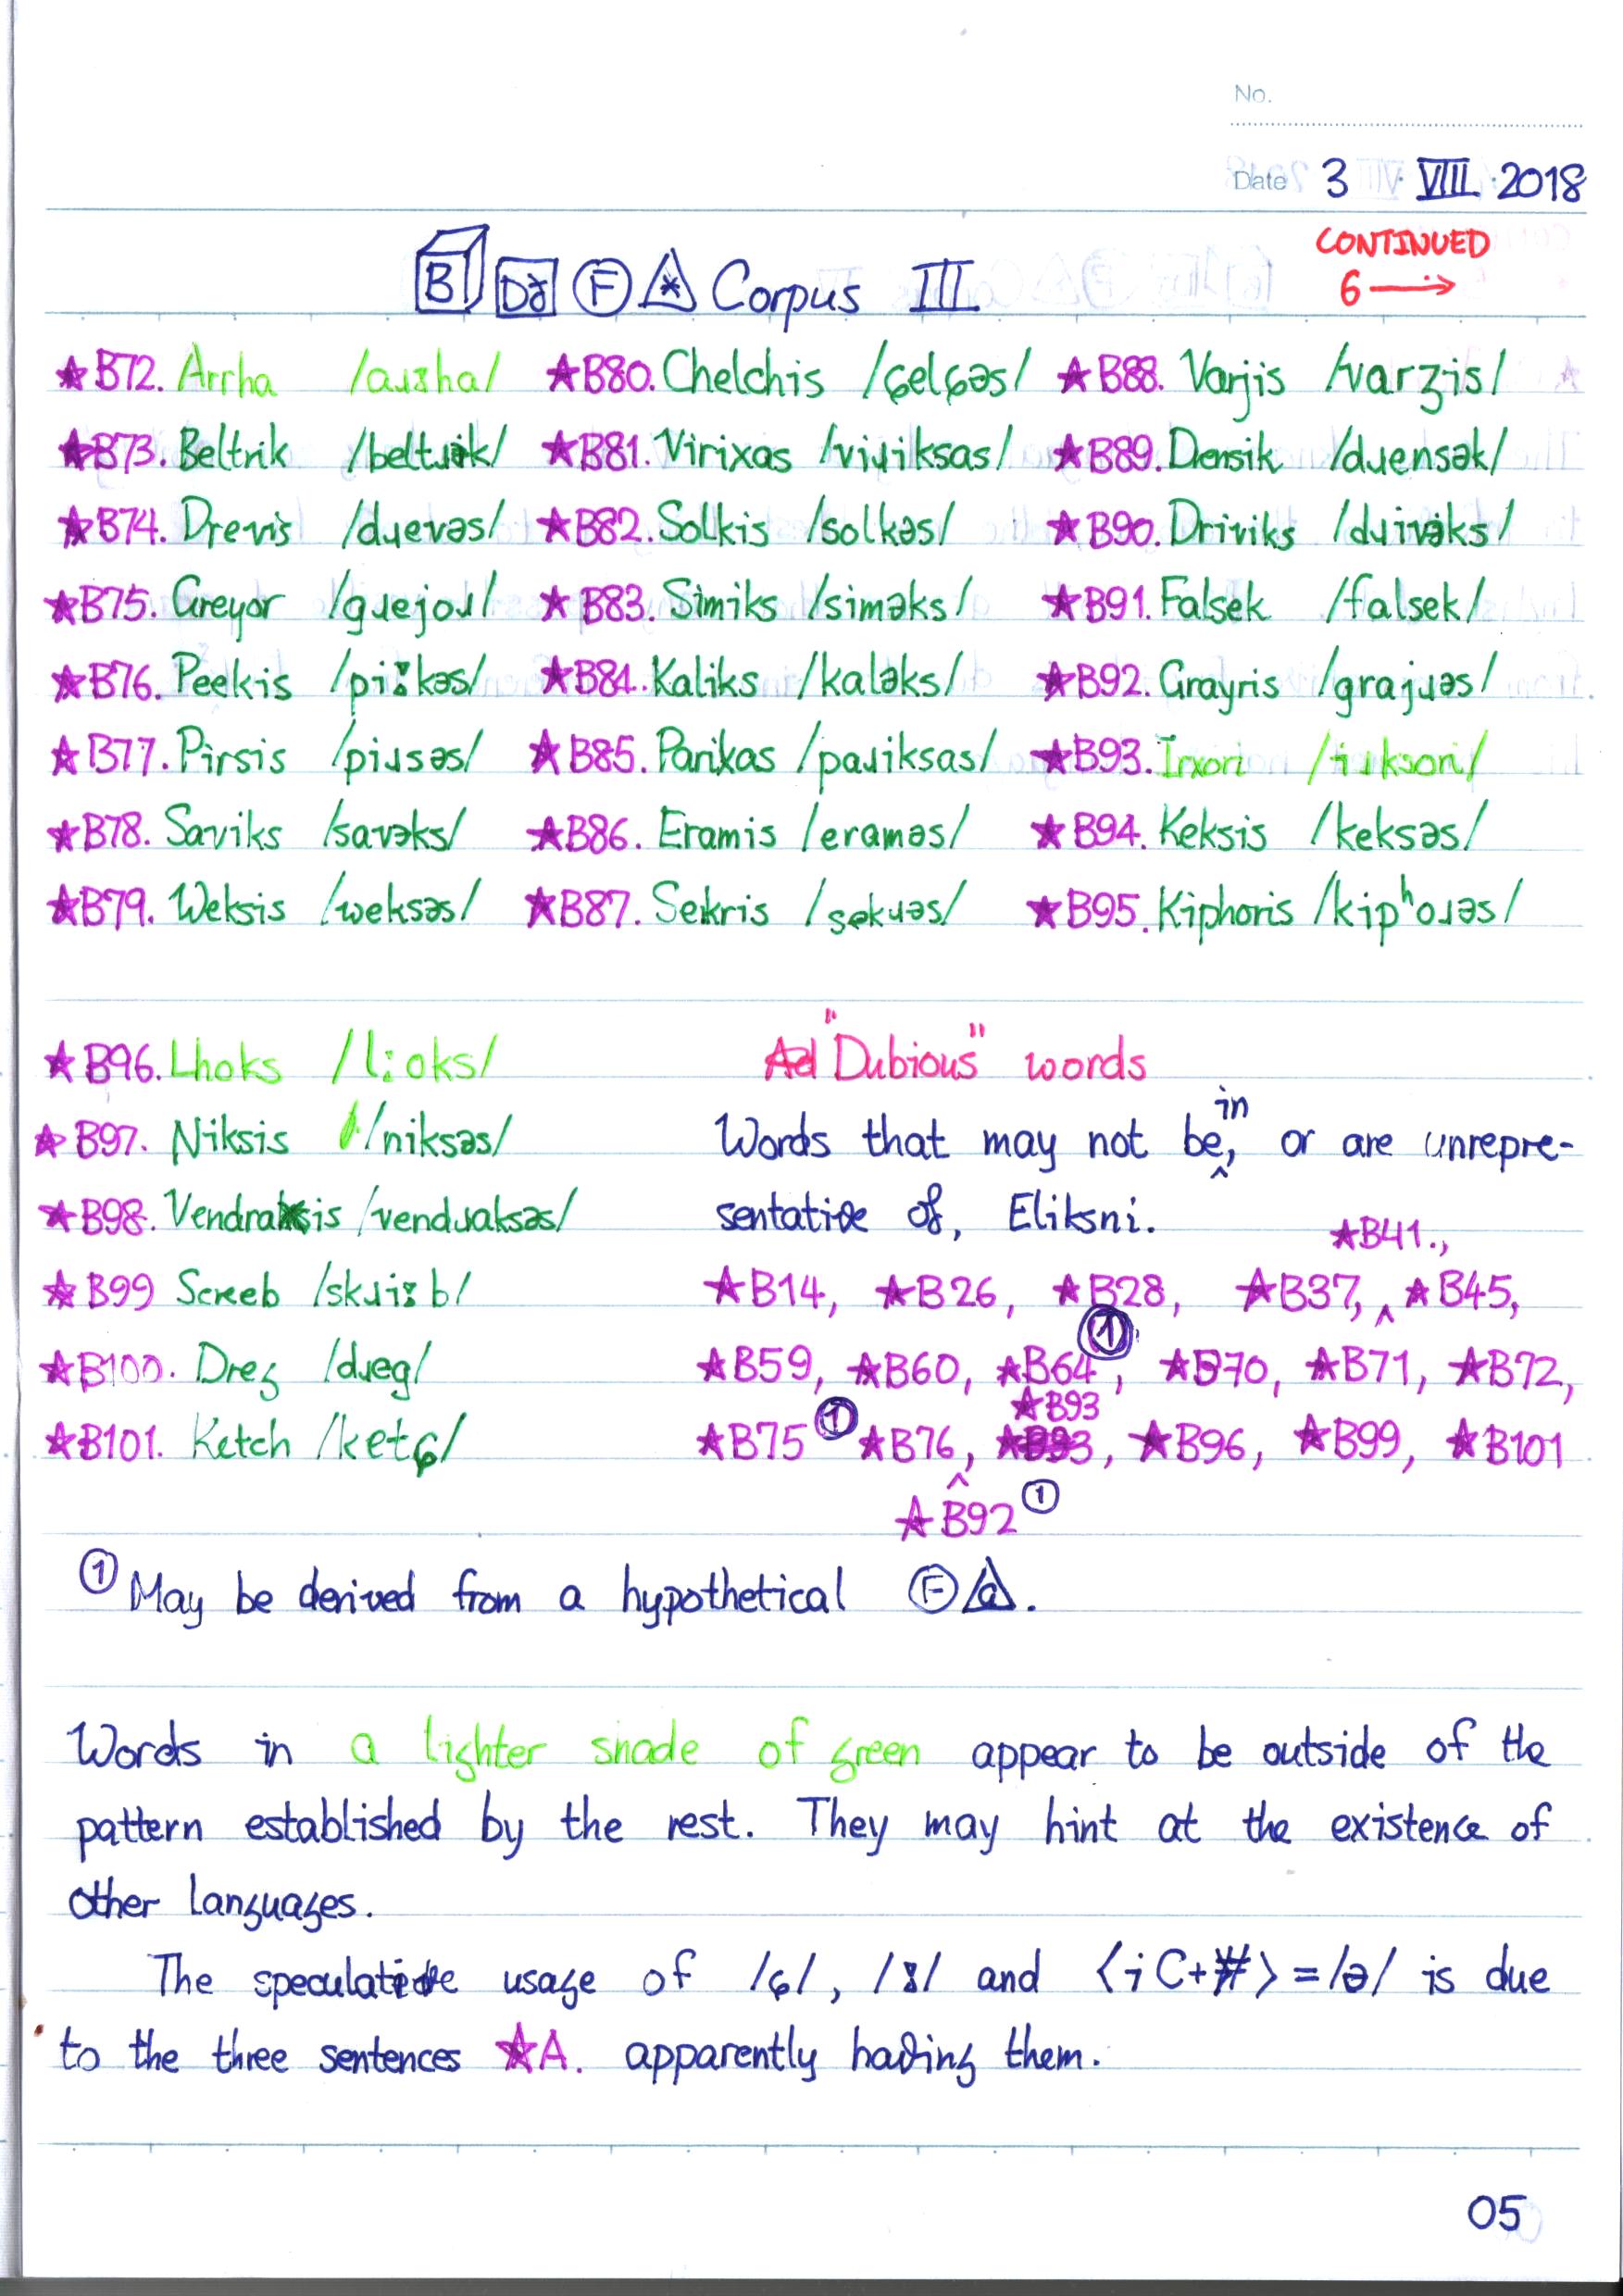 No.
Date 3 VIII 2018
CONTINUED
6 →
B Dz F * Corpus III
★B72. Arrha /aɹːha/ ★B80. Chelchis /ɕelɕəs/ ★B88. Varjis /varʒis/
★B73. Beltrik /beltɹək/ ★B81. Virixas /viɹiksas/ ★B89. Drensik /dɹensək/
★B74. Drevis /dɹevəs/ ★B82. Solkis /solkəs/ ★B90. Driviks /dɹivəks/
★B75. Greyor /gɹejoɹ/ ★B83. Simiks /siməks/ ★B91. Falsek /falsek/
★B76. Peekis /piːkəs/ ★B84. Kaliks /kaləks/ ★B92. Grayris /grajɹəs/
★B77. Pirsis /piɹsəs/ ★B85. Parixas /paɹiksas/ ★B93. Irxori /iɹksori/
★B78. Saviks /savəks/ ★B86. Eramis /eraməs/ ★B94. Keksis /keksəs/
★B79. Weksis /weksəs/ ★B87. Sekris /sekɹəs/ ★B95. Kiphoris /kipʰoɹəs/
★B96. Lhoks /lːoks/
★B97. Niksis /niksəs/
★B98. Vendraksis /vendɹaksəs/
★B99 Screeb /skɹiːb/
★B100. Dreg /dɹeg/
★B101. Ketch /ketɕ/
"Dubious" words
Words that may not be in, or are unrepre-
sentative of, Eliksni.
★B14, ★B26, ★B28, ★B37, ★B41., ★B45,
★B59, ★B60, ★B64①, ★B70, ★B71, ★B72,
★B75① ★B76, ★B92① ★B93, ★B96, ★B99, ★B101
① May be derived from a hypothetical F a.
Words in a lighter shade of green appear to be outside of the
pattern established by the rest. They may hint at the existence of
other languages.
The speculative usage of /ɕ/, /ː/ and ⟨iC+#⟩=/ə/ is due
to the three sentences ★A. apparently having them.
05